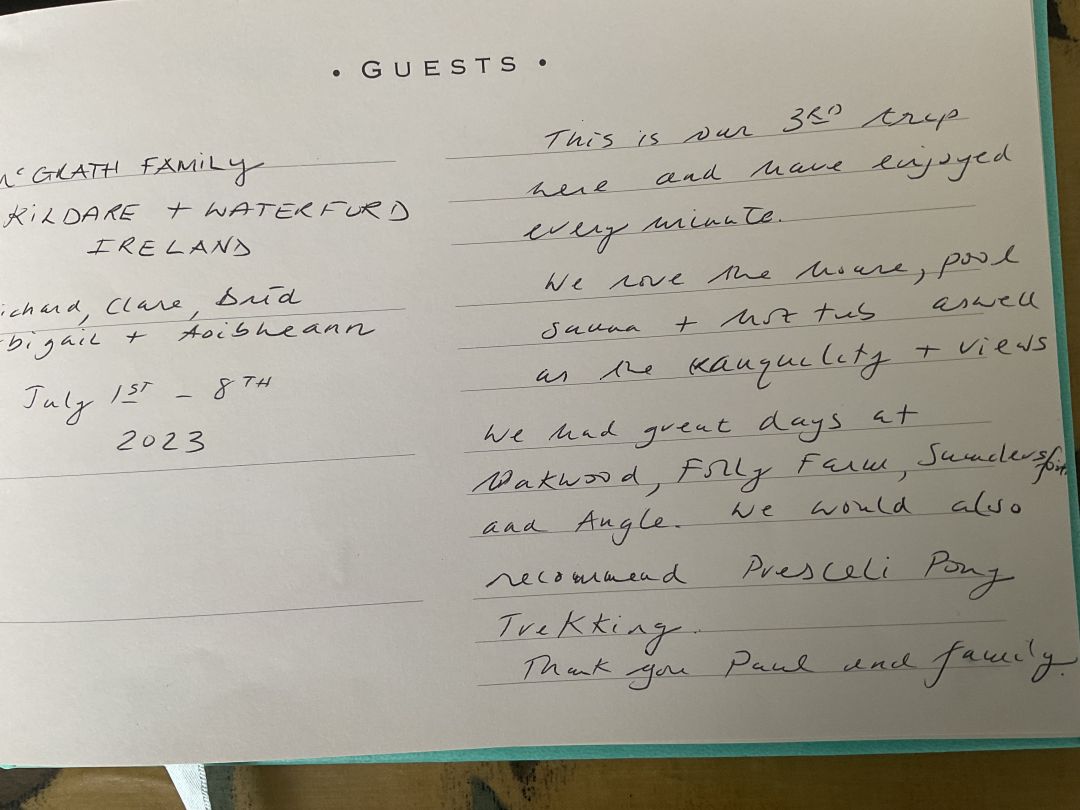 • GUESTS •
McGRATH FAMILY
KILDARE + WATERFORD
IRELAND
ichard, Clare, Bríd
bigail + Aoibheann
July 1ST - 8TH
2023
This is our 3RD trip
here and have enjoyed
every minute.
We love the house, pool
sauna + hot tub aswell
as the tranquility + views
We had great days at
Oakwood, Folly Farm, Saundersfoot
and Angle. We would also
recommend Presceli Pony
Trekking.
Thank you Paul and family.